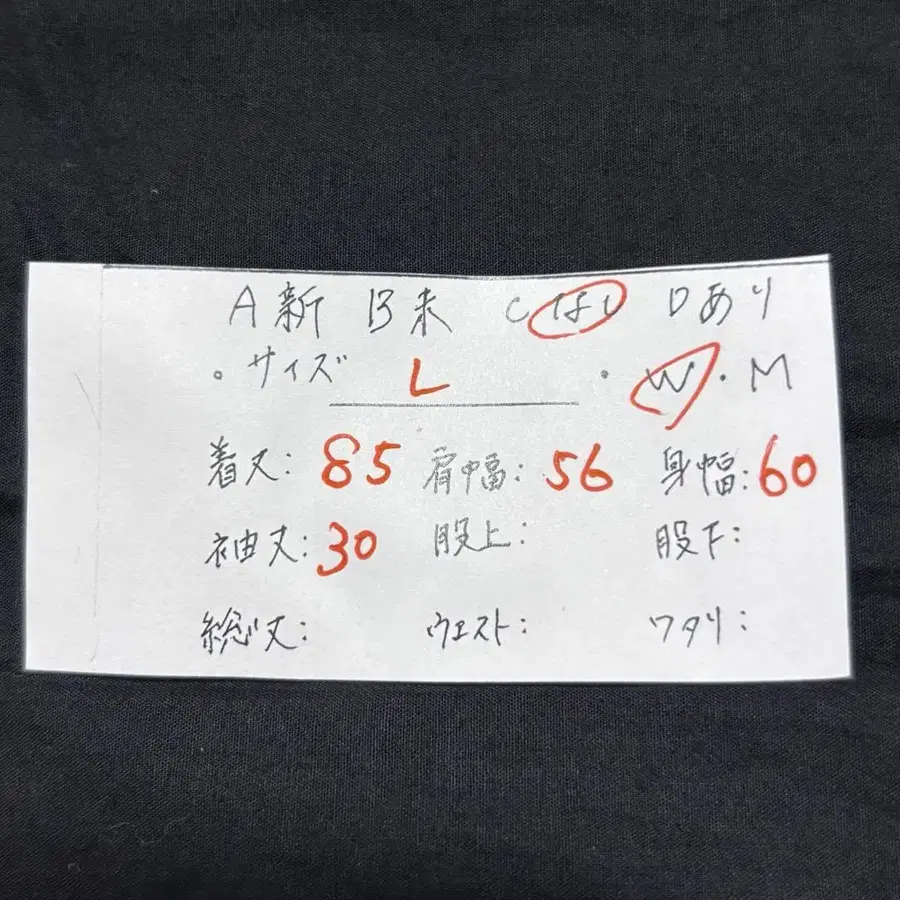 A新 B未 Cなし Dあり
。サイズ L ・W・M
着丈: 85 肩幅: 56 身幅: 60
袖丈: 30 股上: 股下:
総丈: ウエスト: ワタリ: